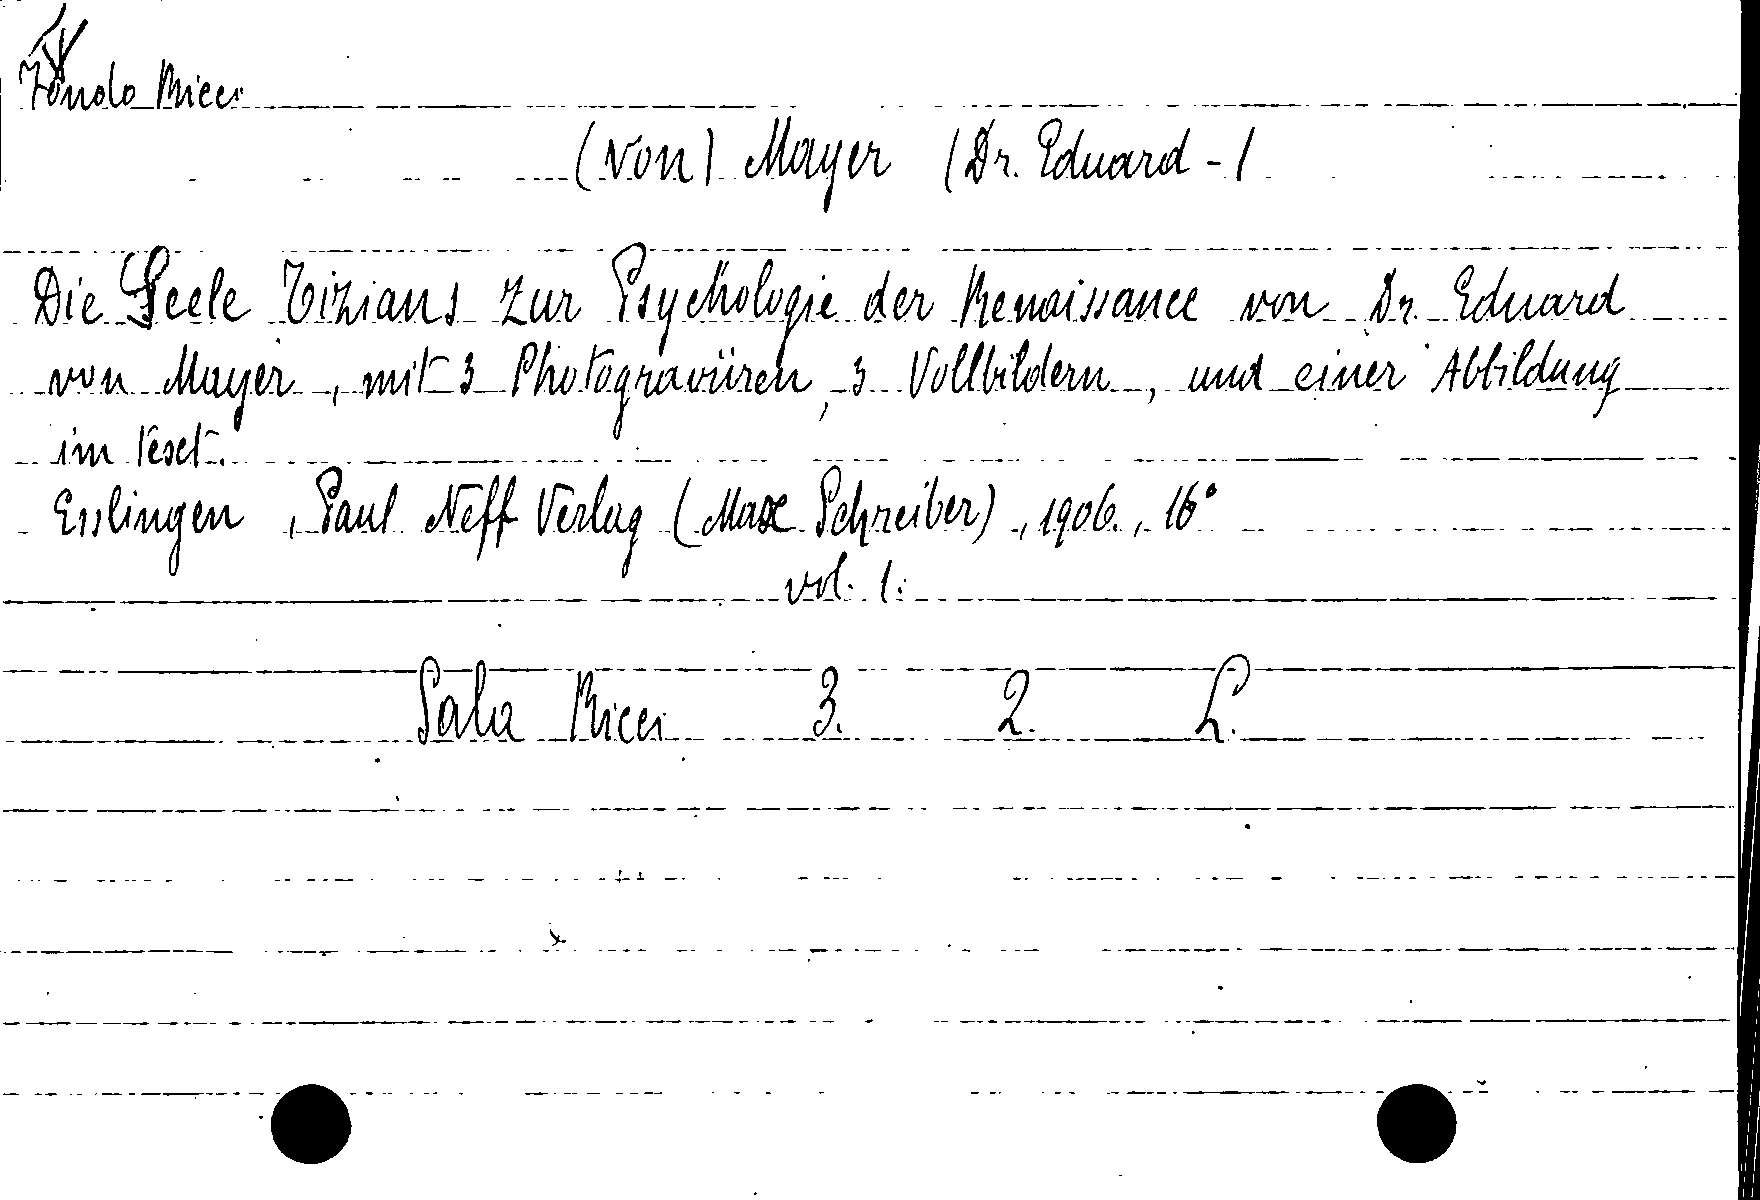 Fondo Ricci
(von) Mayer (Dr. Eduard - )
Die Seele Tizians zur Psychologie der Renaissance von Dr. Eduard
von Mayer, mit 3 Photogravüren, 3 Vollbildern, und einer Abbildung
im Text.
Esslingen, Paul Neff Verlag (Max Schreiber), 1906., 16°
vol. 1.
Sala Ricci 3. 2. L.